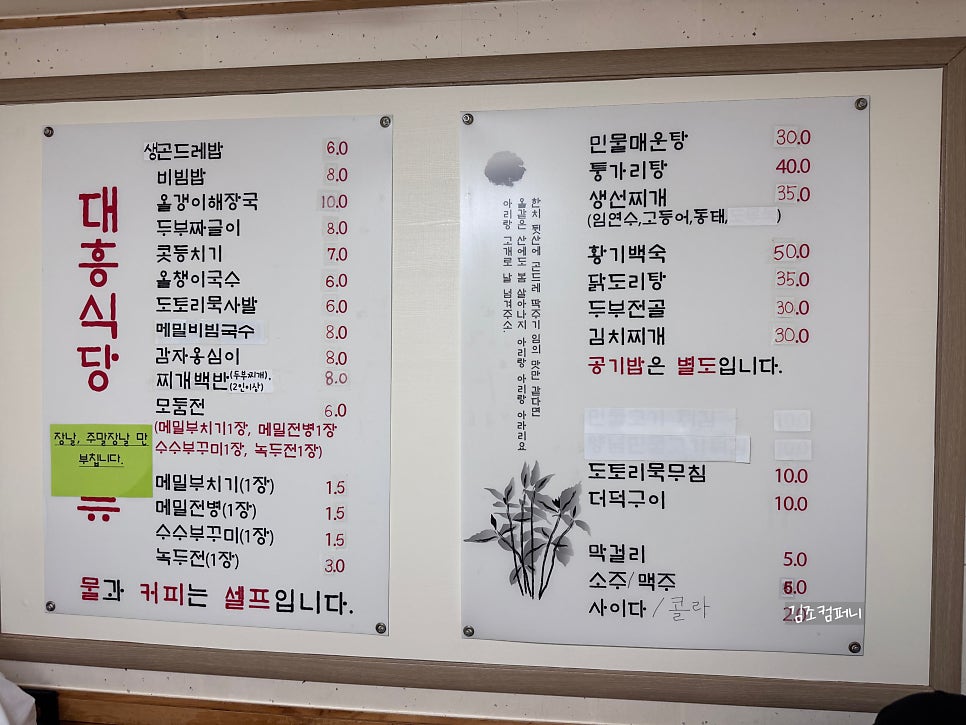 대흥식당
생곤드레밥 6.0
비빔밥 8.0
올갱이해장국 10.0
두부짜글이 8.0
콧등치기 7.0
올챙이국수 6.0
도토리묵사발 6.0
메밀비빔국수 8.0
감자옹심이 8.0
찌개백반(두부찌개). (2인이상) 8.0
모둠전 6.0
(메밀부치기1장, 메밀전병1장
수수부꾸미1장, 녹두전1장)
장날, 주말장날 만
부칩니다.
메밀부치기(1장) 1.5
메밀전병(1장) 1.5
수수부꾸미(1장) 1.5
녹두전(1장) 3.0
물과 커피는 셀프입니다.
한치 뒷산에 곤드레 딱주기 임의 맛만 같다면
올같은 산에도 봄 살아나지 아리랑 아리랑 아라리요
아리랑 고개로 날 넘겨주소.
민물매운탕 30.0
퉁가리탕 40.0
생선찌개 35.0
(임연수,고등어,동태, )
황기백숙 50.0
닭도리탕 35.0
두부전골 30.0
김치찌개 30.0
공기밥은 별도입니다.
도토리묵무침 10.0
더덕구이 10.0
막걸리 5.0
소주/맥주 6.0
사이다/콜라
김조컴퍼니